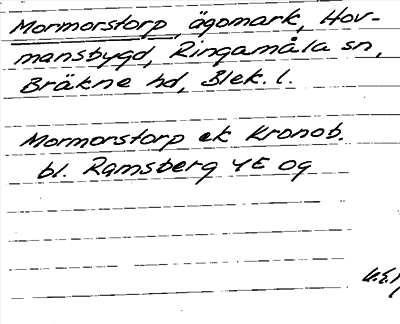 Mormorstorp, ägomark, Hov-
mansbygd, Ringamåla sn,
Bräkne hd, Blek. l.
Mormorstorp ek Kronob.
bl. Ramsberg 4E 0g